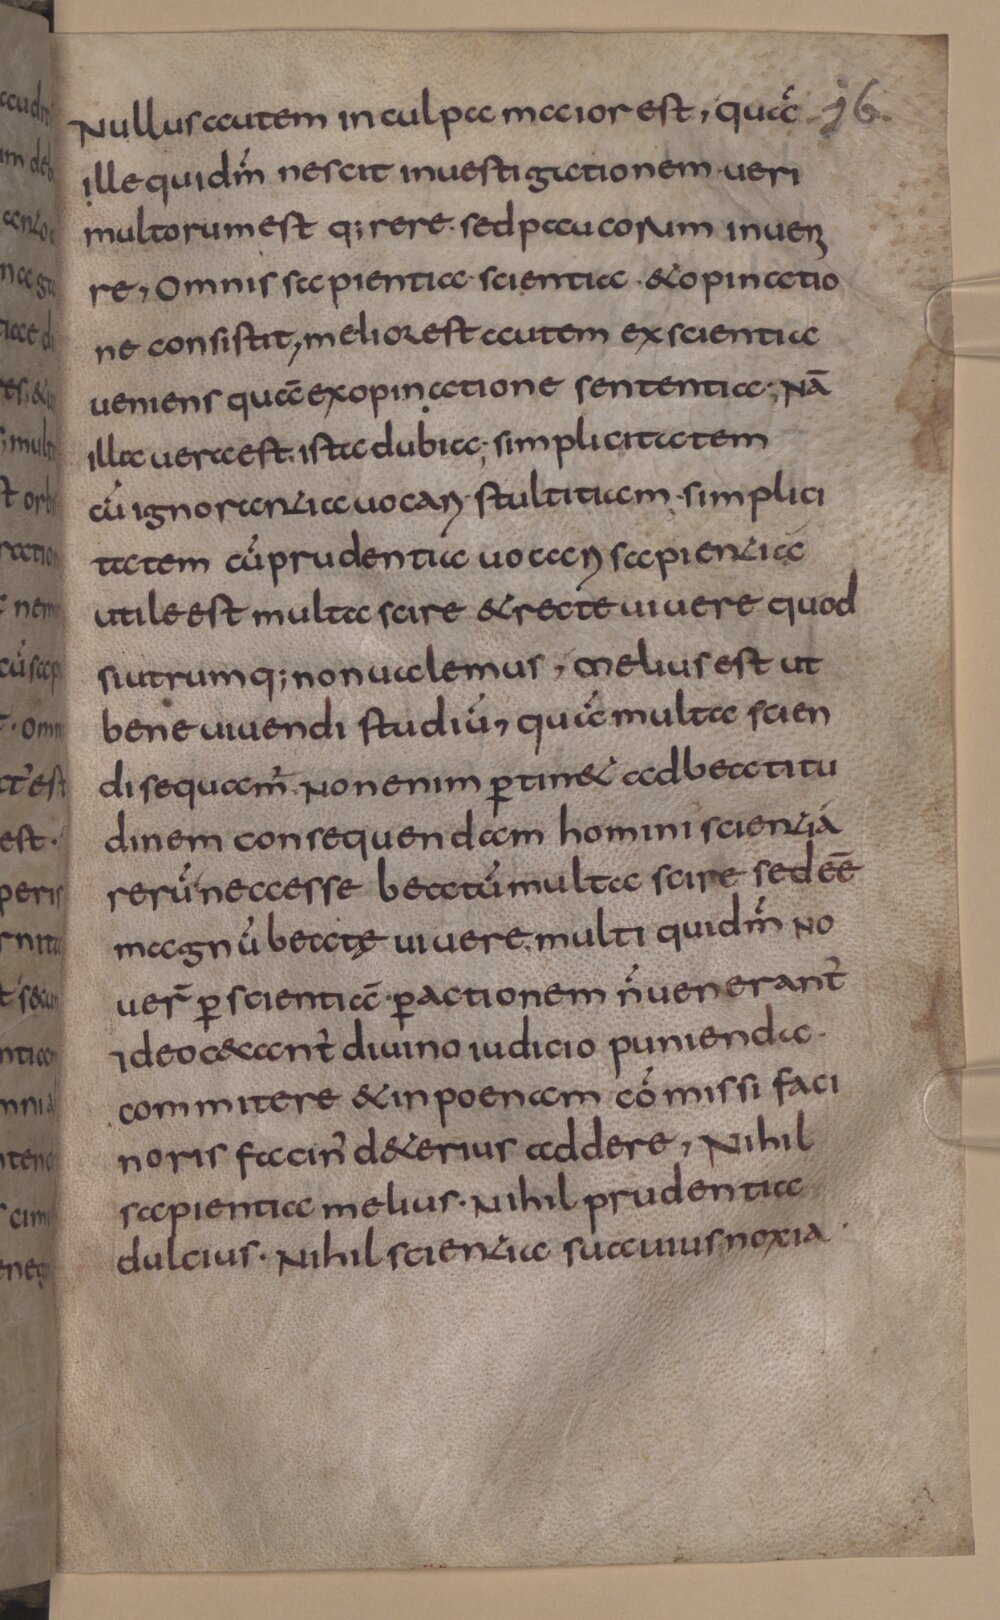 Nullus autem in culpa maior est, quā 16.
ille quidm̄ nescit investigationem veri
multorum est q;rere· sed paucorum inven
re, Omnis sapientia· scientia· & opinatio
ne consistit, melior est autem ex scientia
veniens quā ex opinatione sententia; Nā
illa vera est· ista dubia; simplicitatem
cū ignorantia vocan̄ stultitiam· simplici
tatem cū prudentia vocan̄ sapientia
utile est multa scire & recte vivere quod
si utrumq; non valemus, Melius est ut
bene vivendi studiū, quā multa scien
di sequam̄· Non enim p̱tin& ad beatitu
dinem consequendam homini scientiā
rerū neccesse beatū multa scire sed eē
magnū beatę vivere· multi quidm̄ no
ver̄ p̱ scientiā· p̱ actionem n̄ venerant̄
ideo & cant̄ divino iudicio punienda·
commitere & in poenam cō missi faci
noris facin̄ d&erius addere, Nihil
sapientia melius· Nihil prudentia
dulcius· Nihil scientia suavius noxia·